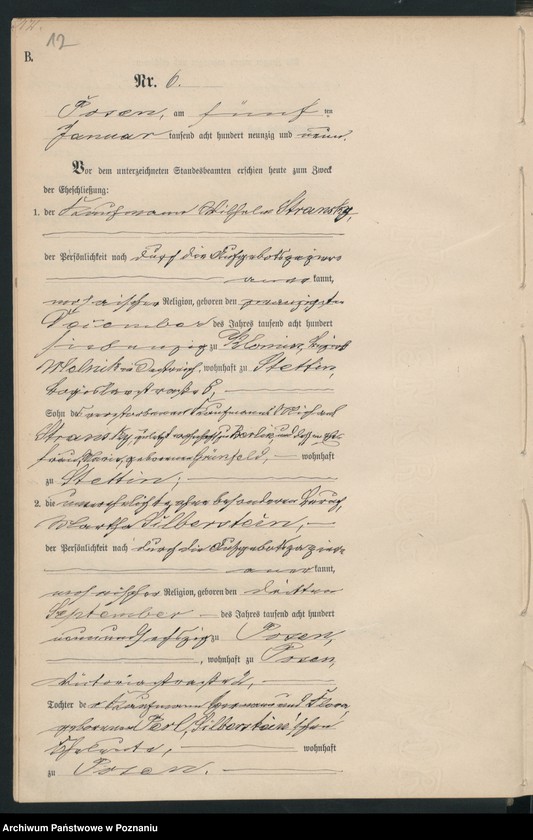 12
B.
Nr. 6.
Posen, am fünften
Januar tausend acht hundert neunzig und neun.
Vor dem unterzeichneten Standesbeamten erschien heute zum Zweck
der Eheschließung:
1. der Kaufmann Wilhelm Stransky,
der Persönlichkeit nach durch die Aufgebotspapiere
anerkannt,
mosaischer Religion, geboren den zwanzigsten
Dezember des Jahres tausend acht hundert
siebenzig zu
Melnik in Oestreich, wohnhaft zu Stettin,
Bogislavstraße 6,
Sohn des verstorbenen Kaufmanns
Stransky, zuletzt wohnhaft zu Berlin, und dessen Ehe-
frau, Marie, geborenen Grünfeld, wohnhaft
zu Stettin;
2. die unverehelichte, ohne besonderen Beruf,
Martha Silberstein,
der Persönlichkeit nach durch die Aufgebotspapiere
anerkannt,
mosaischer Religion, geboren den dritten
September des Jahres tausend acht hundert
neunundsechzig zu Posen,
, wohnhaft zu Posen,
Victoriastraße 2,
Tochter der Kaufmann Hermann und Flora,
geborenen Perl, Silberstein'schen
Eheleute, wohnhaft
zu Posen.
Archiwum Państwowe w Poznaniu